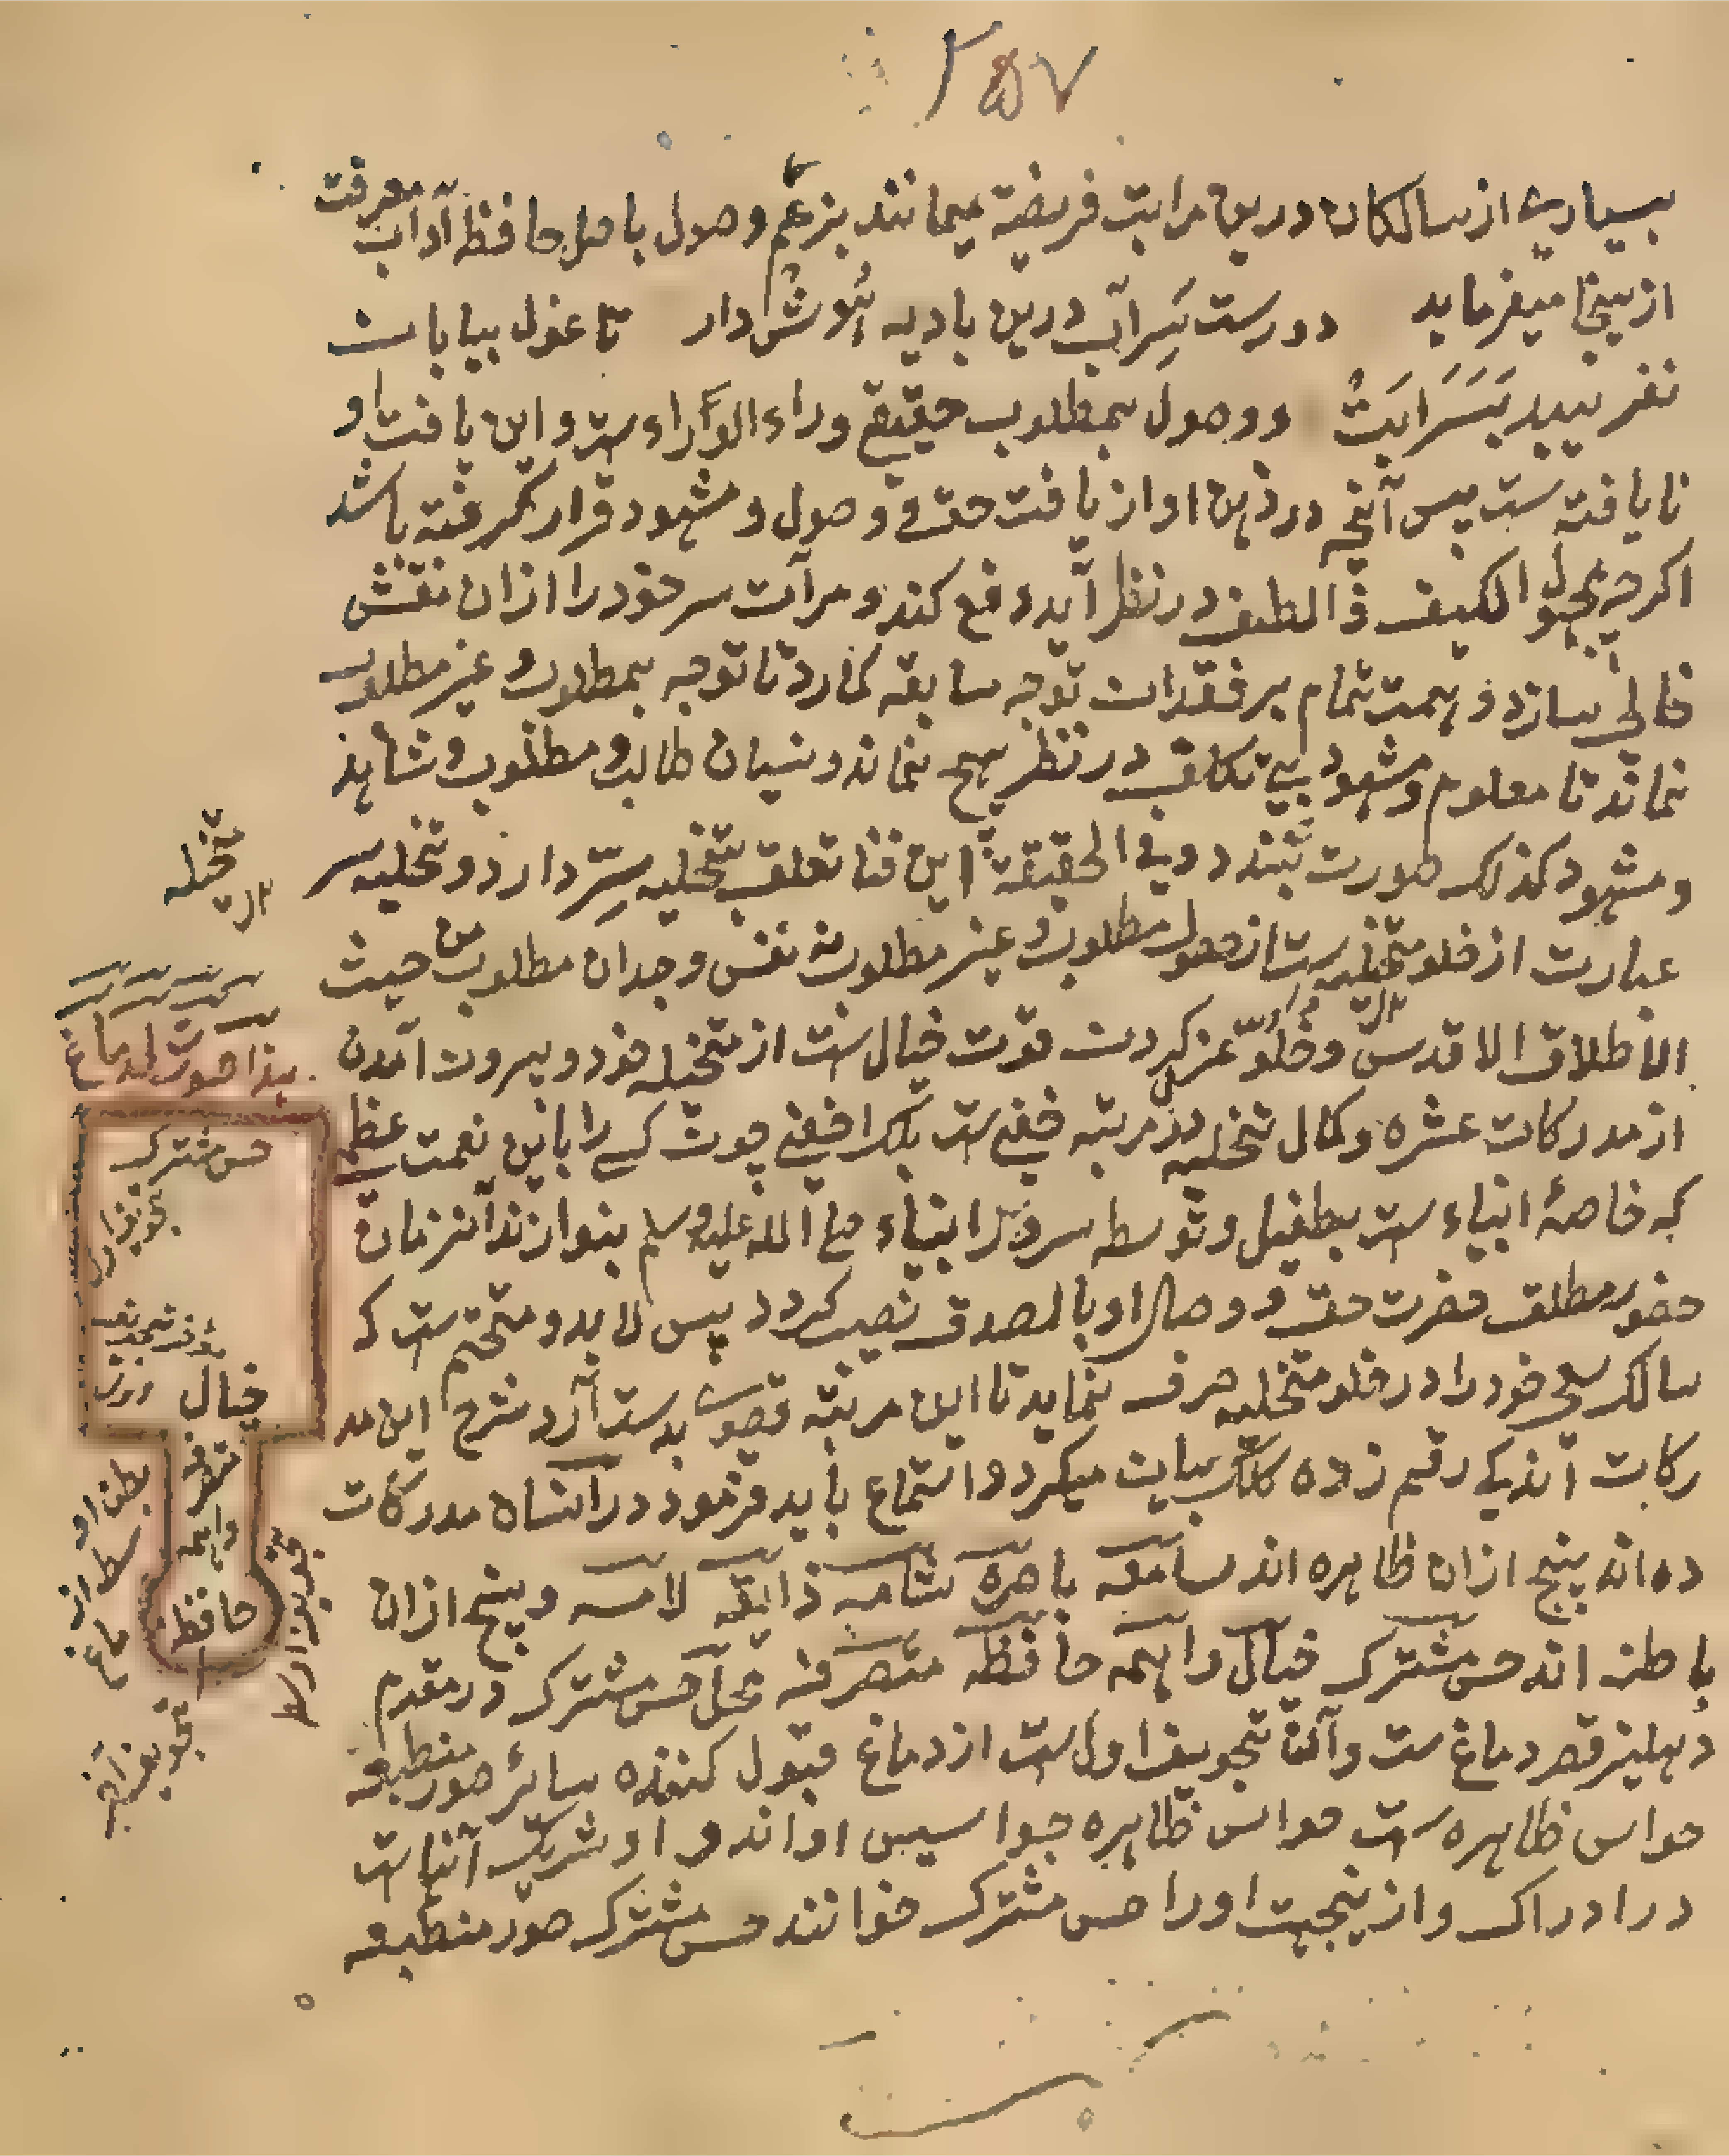 ۲۵۷
بسیاری از سالکان درین مراتب فریفته میمانند بزعم وصول بامل حافظ آداب معرفت
ازینجا میفرماید دورست سَرِ آب درین بادیه هُوش دار تا غول بیابان
نفریبد بَسَرابَتْ ووصول بمطلوب حقیقی وراء الوَراءست و این یافت او
نایافته ست پس آنچه در ذهن او از یافت حق و وصول و شهود قرار گرفته باشد
اگرچه مجهول الکیف و الطف در نظر آید دفع کند و مرآت سر خود را ازان نقش
خالی سازد و بهمت تمام بر فقدان توجه سابقه گمارد تا توجه بمطلوب و غیر مطلوب
نماند تا معلوم و مشهود بی تکلف در نظر هیچ نماند و نسیان طالب و مطلوب و شاهد
و مشهود کذلک صورت بندد و فی الحقیقة این فنا تعلق بتخلیه سِرّ دارد و تخلیه سر
عبارت از خلو متخیله ست از حصول مطلوب و غیر مطلوب نه نفس وجدان مطلوب من حیث
الاطلاق الاقدس و خلوّ عزل کردن قوت خیال ست از متخیله خود و بیرون آمدن
از مدرکات عشره و کمال تخلیه درین مرتبه خفی ست بلکه اخفی چون کسی را باین نعمت عظمی
که خاصهٔ انبیاء ست بطفیل و توسط سرور انبیاء صلی الله علیه وسلم بنوازند آنزمان
حضور مطلق حضرت حق و وصال او بالصدق نصیب گردد پس لابد و متحتم ست که
سالک سعی خود را در خلو متخیله صرف نماید تا این مرتبه قصوی بدست آرد شرح این مد
رکات اندکی رقم زده کلک بیان میگردد استماع باید فرمود در انسان مدرکات
ده اند پنج ازان ظاهره اند سامعه باصره شامه ذایقه لامسه و پنج ازان
باطنه اند حس مشترک خیال واهمه حافظه متصرفه محل حس مشترک در مقدم
دهلیز قصر دماغ ست و آن تجویف اول ست از دماغ قبول کننده سائر صور منطبعه
حواس ظاهره ست حواس ظاهره جواسیس او اند و او شریک آنها ست
در ادراک و ازینجهت او را حس مشترک خوانند حس مشترک صور منطبعه
متخیله
هذا صورت الدماغ
حس مشترک
تجویف اول
مؤخر تجویف
خیال
متصرفه
واهمه
حافظه
بطن او
سط از
دماغ
تجویف اوسط
تجویف آخر